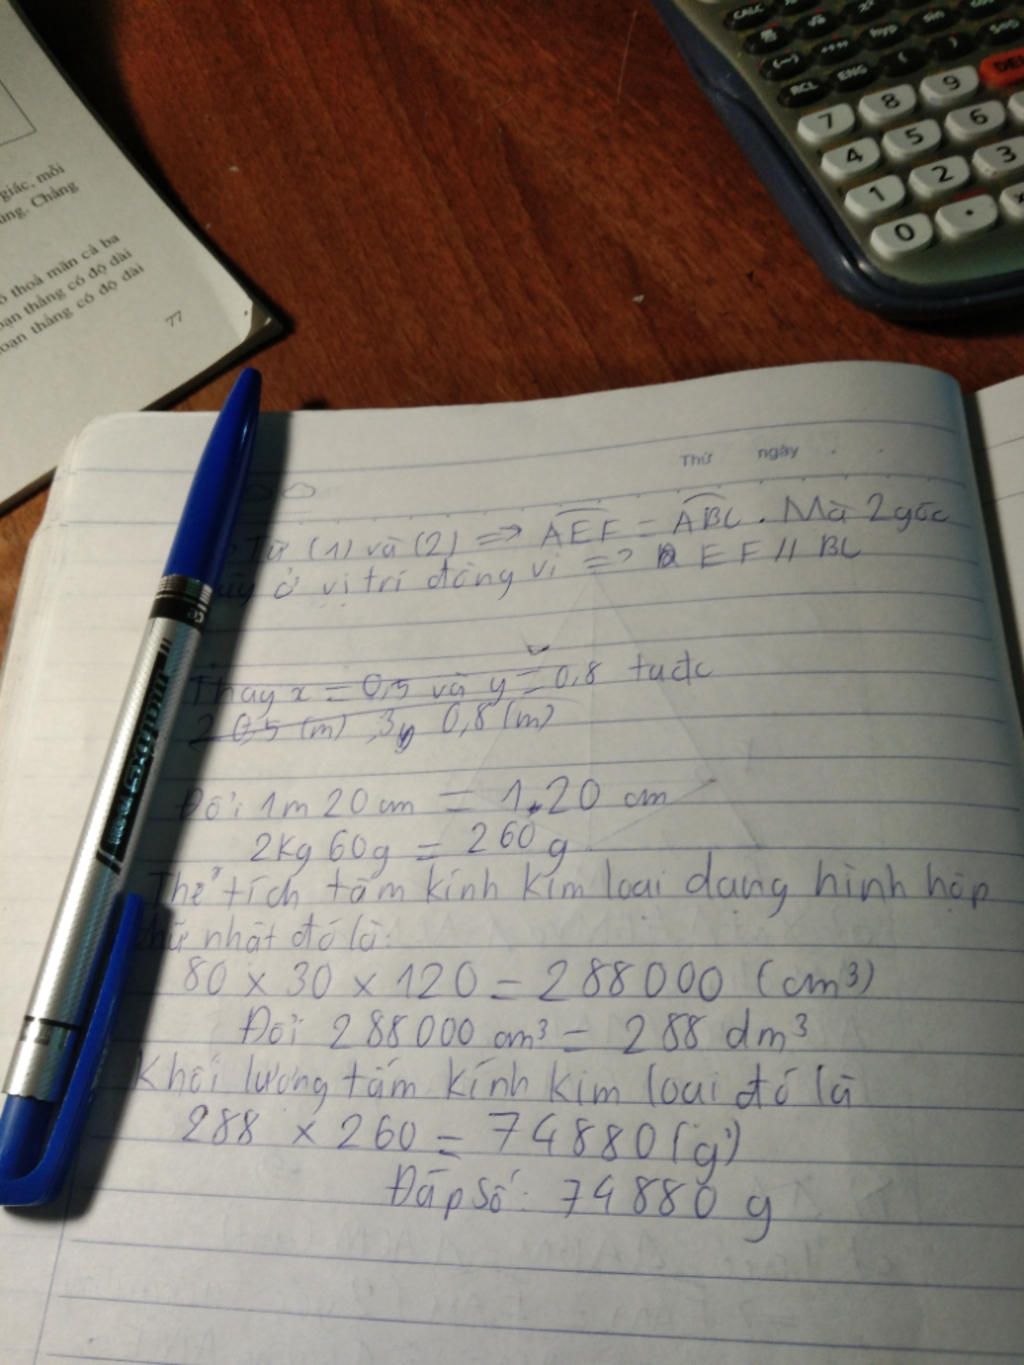 giác, mỗi
ũng. Chẳng
ó thoả mãn cả ba
oạn thẳng có độ dài
oạn thẳng có độ dài
77
CALC
sin
hyp
(−)
RCL
ENG
(
)
DEL
7
8
9
4
5
6
1
2
3
0
.
Thứ ngày
Từ (1) và (2) => AEF = ABC. Mà 2 góc
ở vị trí đồng vị => EF // BC
Thay x = 0,5 và y = 0,8 tađc
2 0,5 (m) ,3y 0,8 (m)
Đổi 1m 20 cm = 1.20 cm
2Kg 60g = 260 g
Thể tích tấm kính kim loại dạng hình hộp
chữ nhật đó là:
80 x 30 x 120 = 288000 (cm³)
Đổi 288000 cm³ = 288 dm³
Khối lương tấm kính kim loại đó là
288 x 260 = 74880 (g)
Đáp số: 74880 g